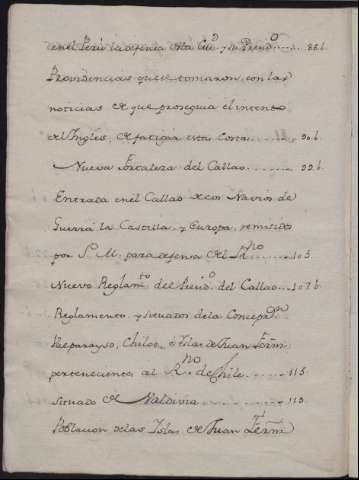 en el Perù la defensa esta Ciu.d y su Presid.o ..... 88 b.
Providencias que se tomaron, con las
noticias de que proseguia el intento
el Ingles, de fatigar esta Costa ..... 90 b.
Nueva Fortaleza del Callao ........ 99 b.
Entrada en el Callao de los Navios de
Guerra la Castilla y Europa, remitidos
por S. M. para defensa del R.no .. 105
Nuevo Reglam.to del Presid.o del Callao .. 107 b
Reglamento, y situados de la Concep.on
Valparayso, Chiloe, è Islas de Juan Ferrn̄
pertenecientes al R.no de Chile ...... 115
Situado de Valdivia ............ 119
Poblacion de las Islas de Juan Ferrn̄